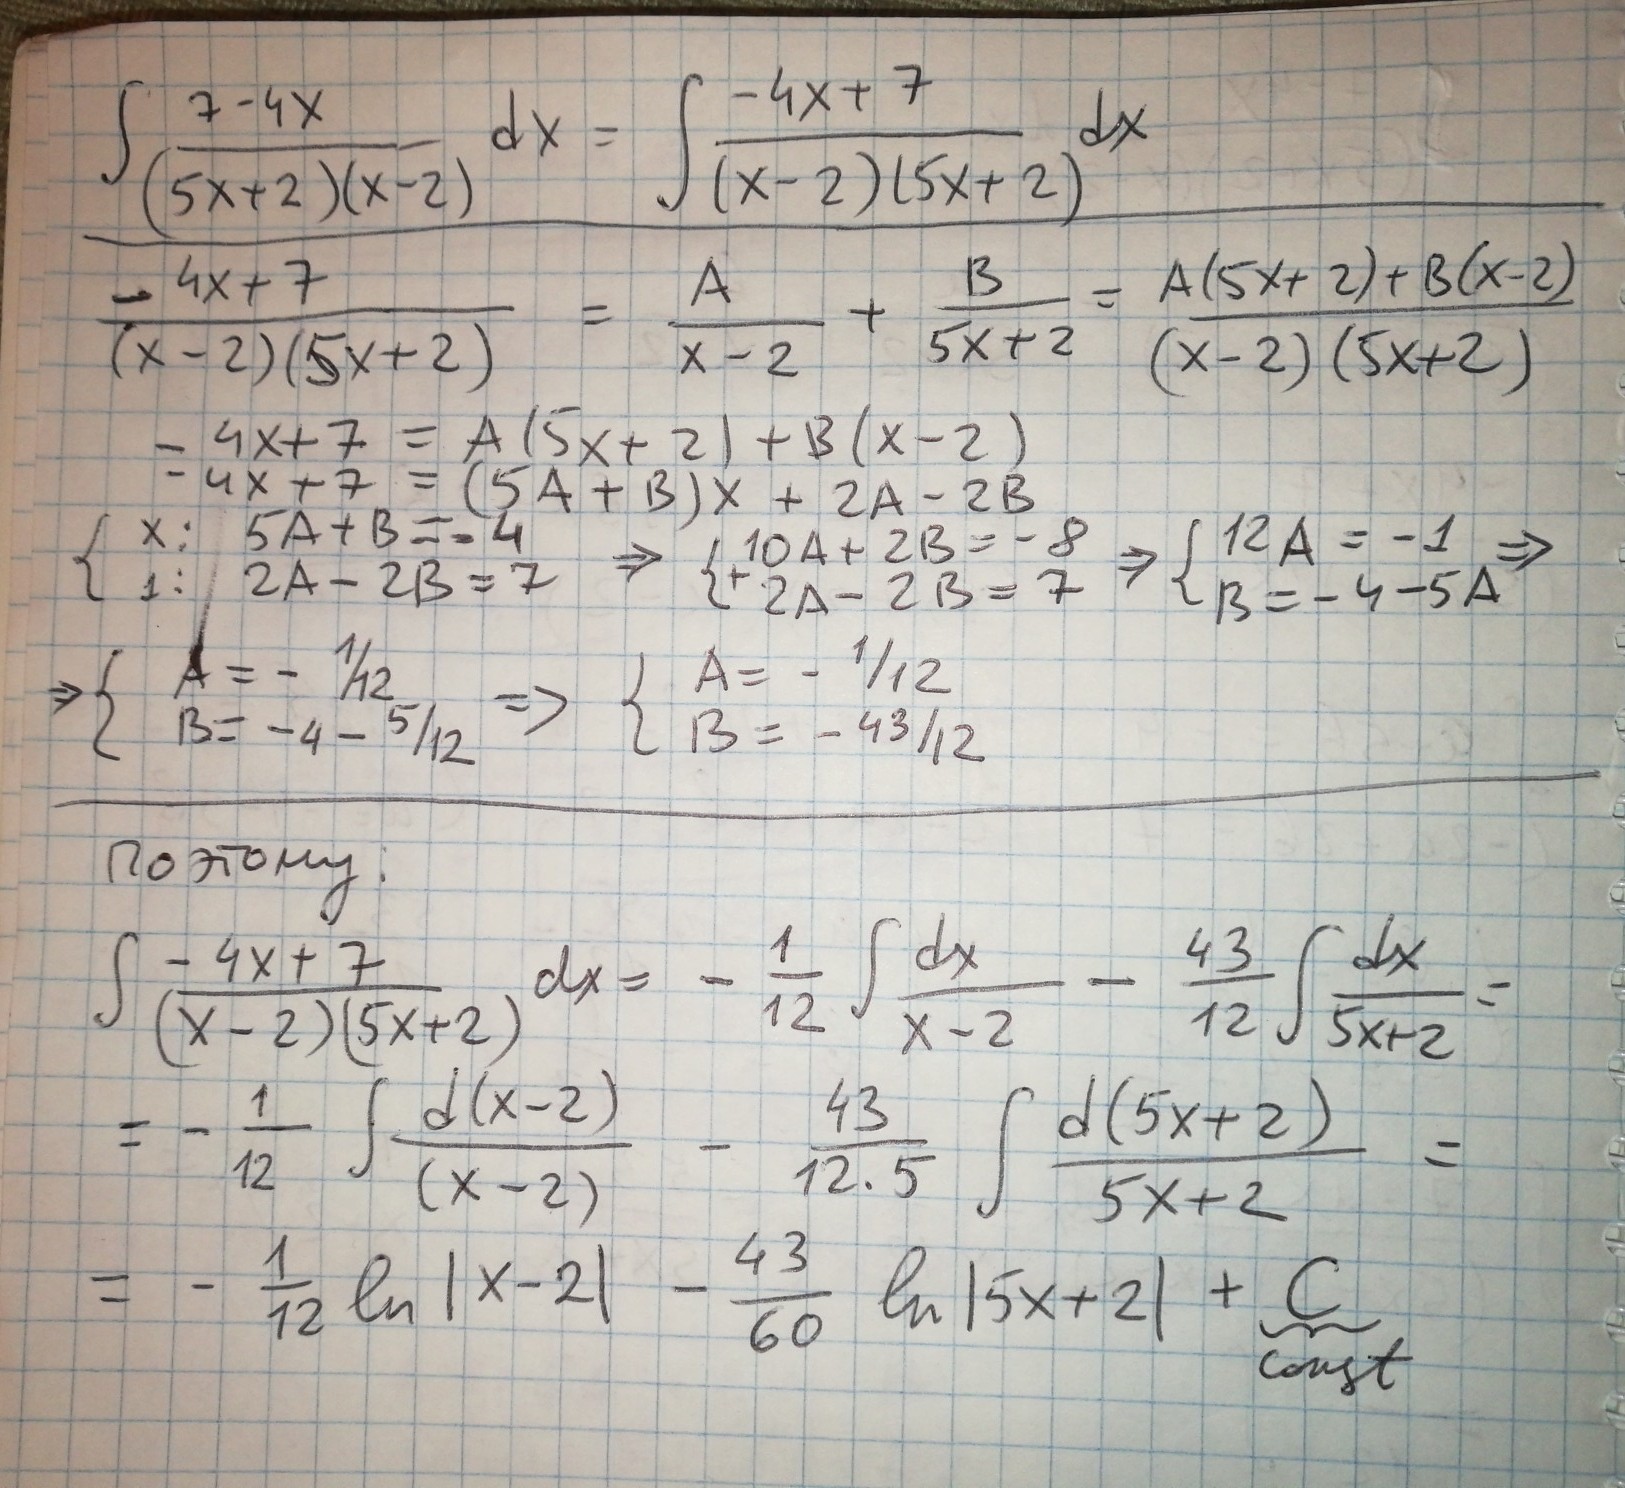 ∫ (7-4x)/((5x+2)(x-2)) dx = ∫ (-4x+7)/((x-2)(5x+2)) dx
(-4x+7)/((x-2)(5x+2)) = A/(x-2) + B/(5x+2) = (A(5x+2)+B(x-2))/((x-2)(5x+2))
-4x+7 = A(5x+2)+B(x-2)
-4x+7 = (5A+B)x + 2A-2B
{ x: 5A+B=-4 ⇒ { 10A+2B=-8 ⇒ { 12A=-1 ⇒
1: 2A-2B=7 + 2A-2B=7 B=-4-5A
⇒ { A=-1/12 => { A=-1/12
B=-4-5/12 B=-43/12
Поэтому:
∫ (-4x+7)/((x-2)(5x+2)) dx = -1/12 ∫ dx/(x-2) - 43/12 ∫ dx/(5x+2) =
= -1/12 ∫ d(x-2)/(x-2) - 43/(12·5) ∫ d(5x+2)/(5x+2) =
= -1/12 ln|x-2| - 43/60 ln|5x+2| + C
const